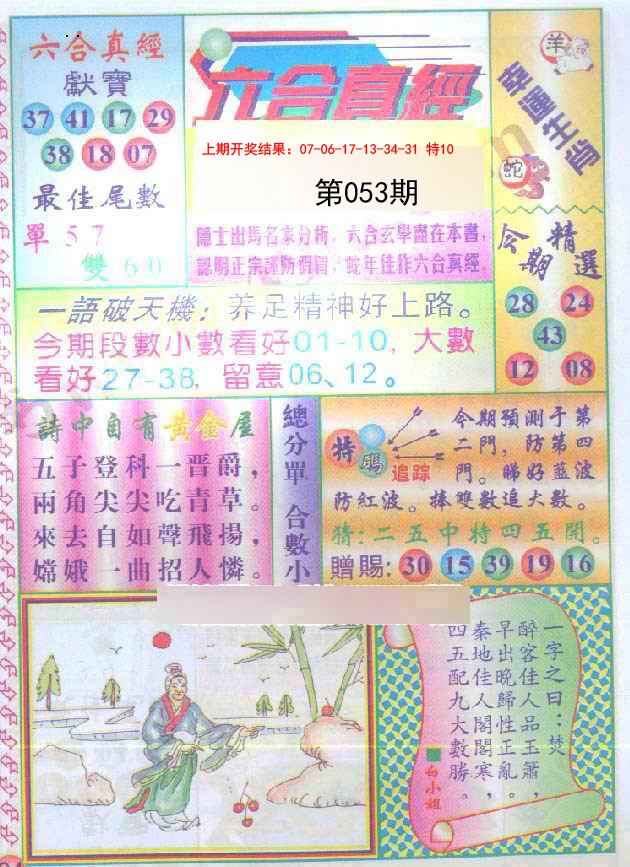 六合真經
獻寶
37 41 17 29
38 18 07
最佳尾數
單57
雙60
六合真經
上期开奖结果: 07-06-17-13-34-31 特10
第053期
隱士出馬名家分析, 六合玄學盡在本書,
認明正宗謹防假冒, 蛇年佳作六合真經.
羊
幸運生肖
蛇
今期精選
28 24
43
12 08
一語破天機: 养足精神好上路。
今期段數小數看好01-10, 大數
看好27-38, 留意06、12。
詩中自有黃金屋
五子登科一晋爵,
兩角尖尖吃青草。
來去自如聲飛揚,
嫦娥一曲招人憐。
總分單 合數小
特碼
追踪
今期預測于第
二門, 防第四
門。睇好藍波
防紅波。捧雙數追大數。
猜: 二五中特四五開。
贈賜: 30 15 39 19 16
一字之曰: 焚
醉客佳人品玉簫,
早出晚歸性正亂。
秦地佳人閣閣寒,
四五配九大數勝。
白小姐